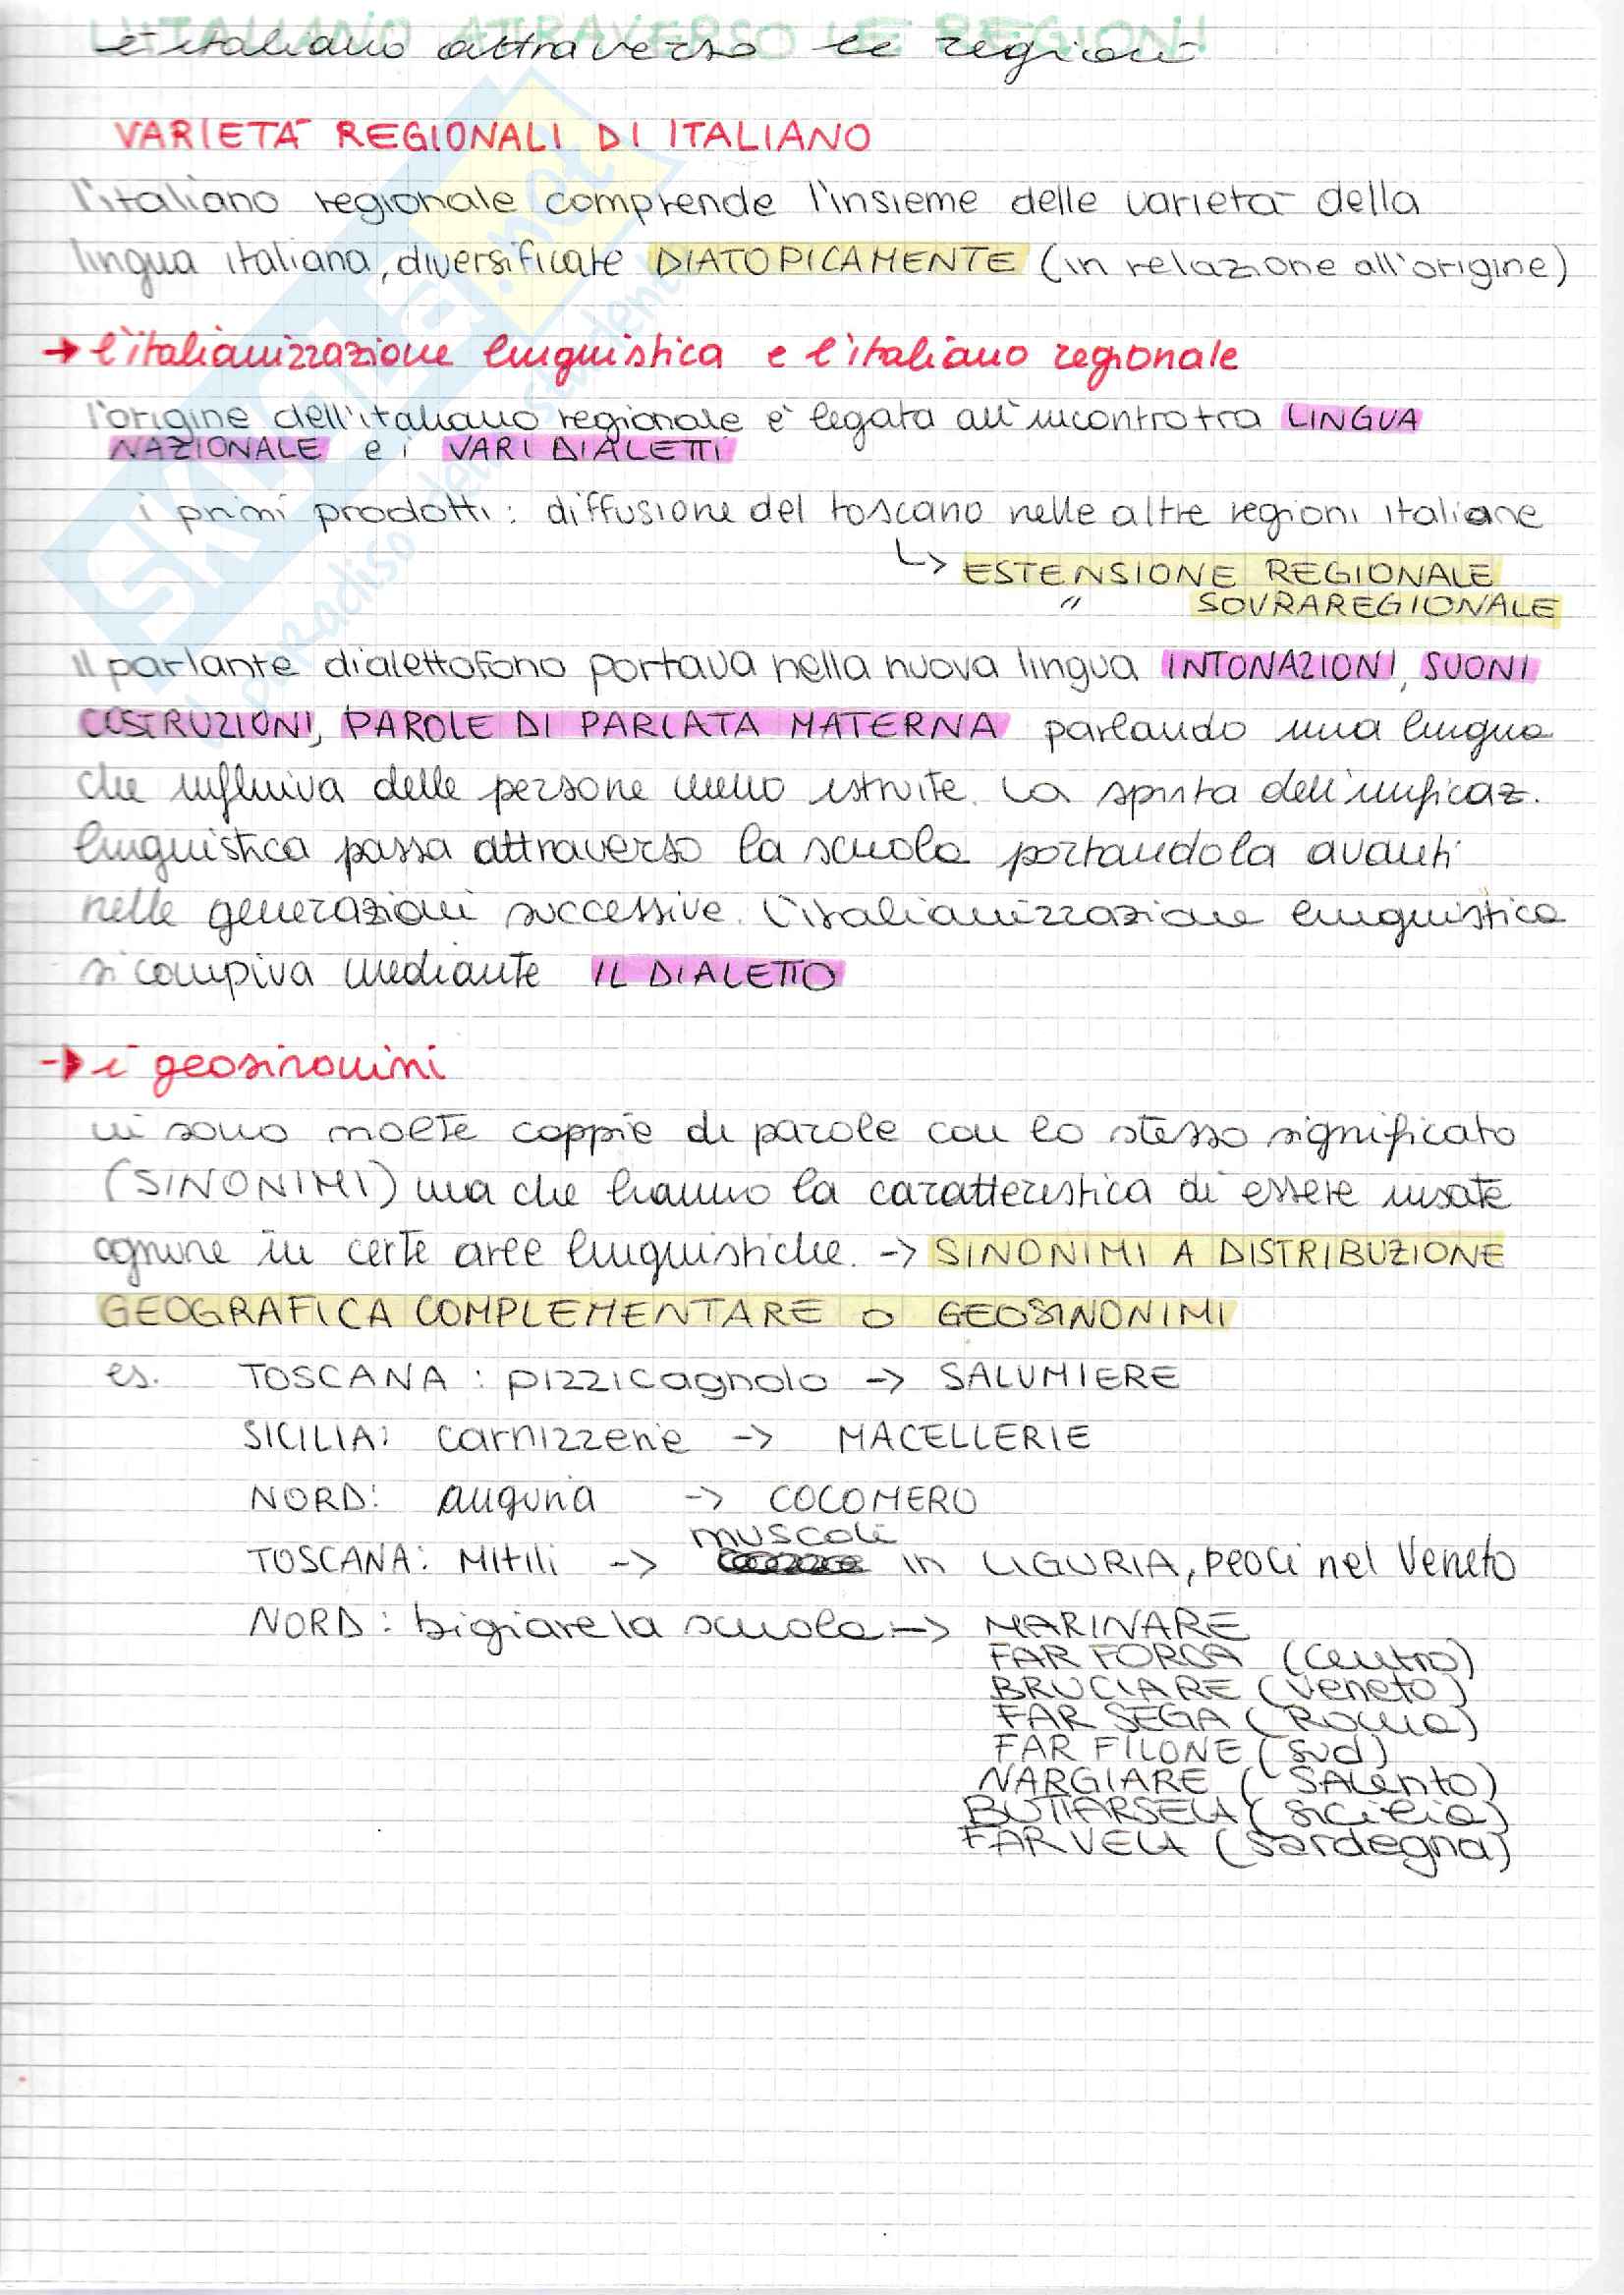 L'ITALIANO ATTRAVERSO LE REGIONI
l'italiano attraverso le regioni
VARIETÀ REGIONALI DI ITALIANO
l'italiano regionale comprende l'insieme delle varietà della
lingua italiana, diversificate DIATOPICAMENTE (in relazione all'origine)
→ l'italianizzazione linguistica e l'italiano regionale
l'origine dell'italiano regionale è legata all'incontro tra LINGUA
NAZIONALE e i VARI DIALETTI
i primi prodotti: diffusione del toscano nelle altre regioni italiane
↳ ESTENSIONE REGIONALE
" SOVRAREGIONALE
Il parlante dialettofono portava nella nuova lingua INTONAZIONI, SUONI
COSTRUZIONI, PAROLE DI PARLATA MATERNA parlando una lingua
che influiva delle persone meno istruite. La spinta dell'unificaz.
linguistica passa attraverso la scuola portandola avanti
nelle generazioni successive. L'italianizzazione linguistica
si compiva mediante IL DIALETTO
→ i geosinonimi
vi sono molte coppie di parole con lo stesso significato
(SINONIMI) ma che hanno la caratteristica di essere usate
ognune in certe aree linguistiche. -> SINONIMI A DISTRIBUZIONE
GEOGRAFICA COMPLEMENTARE O GEOSINONIMI
es. TOSCANA: pizzicagnolo -> SALUMIERE
SICILIA: carnizzerie -> MACELLERIE
NORD: anguria -> COCOMERO
TOSCANA: Mitili -> muscoli in LIGURIA, peoci nel Veneto
NORD: bigiare la scuola -> MARINARE
FAR FORCA (Centro)
BRUCIARE (Veneto)
FAR SEGA (Roma)
FAR FILONE (Sud)
NARGIARE (SAlento)
BUTTARSELA (Sicilia)
FAR VELA (Sardegna)
SKUOLA.net
il paradiso dello studente